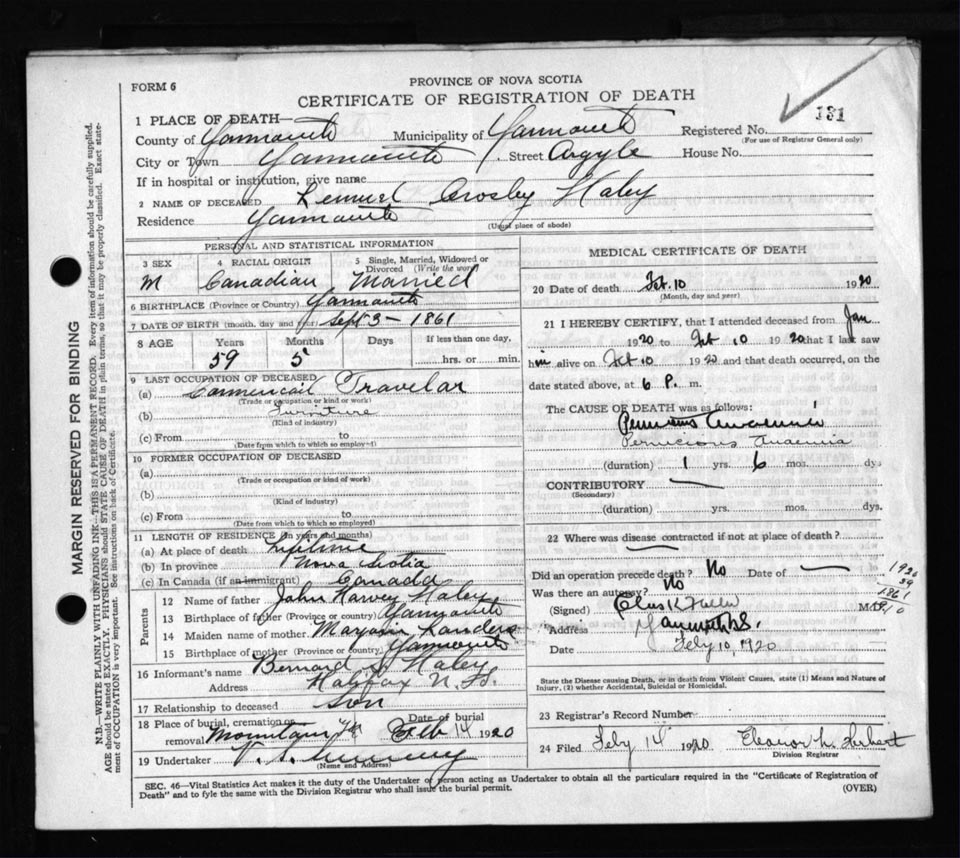 FORM 6
PROVINCE OF NOVA SCOTIA
CERTIFICATE OF REGISTRATION OF DEATH
1 PLACE OF DEATH—
County of Yarmouth Municipality of Yarmouth Registered No. 131
(For use of Registrar General only)
City or Town Yarmouth Street Argyle House No.
If in hospital or institution, give name
2 NAME OF DECEASED Lemuel Crosby Haley
Residence Yarmouth
(Usual place of abode)
PERSONAL AND STATISTICAL INFORMATION
3 SEX 4 RACIAL ORIGIN 5 Single, Married, Widowed or Divorced (Write the word)
M Canadian Married
6 BIRTHPLACE (Province or Country) Yarmouth
7 DATE OF BIRTH (month, day and year) Sept 3 – 1861
8 AGE Years Months Days If less than one day,
59 5 hrs. or min.
9 LAST OCCUPATION OF DECEASED
(a) Commercial Travelar
(Trade or occupation or kind of work)
(b) Furniture
(Kind of industry)
(c) From to
(Date from which to which so employed)
10 FORMER OCCUPATION OF DECEASED
(a)
(Trade or occupation or kind of work)
(b)
(Kind of industry)
(c) From to
(Date from which to which so employed)
11 LENGTH OF RESIDENCE (in years and months)
(a) At place of death Lifetime
(b) In province Nova Scotia
(c) In Canada (if an immigrant) Canada
Parents
12 Name of father John Harvey Haley
13 Birthplace of father (Province or Country) Yarmouth
14 Maiden name of mother Landers
15 Birthplace of mother (Province or country) Yarmouth
16 Informant's name Bernard Haley
Address Halifax N.S.
17 Relationship to deceased Son
18 Place of burial, cremation or removal Mountain Date of burial Feb 14 1920
19 Undertaker
(Name and Address)
MEDICAL CERTIFICATE OF DEATH
20 Date of death Feb. 10 1920
(Month, day and year)
21 I HEREBY CERTIFY, that I attended deceased from Jan
1920 to Feb 10 1920 that I last saw
him alive on Feb 10 1920 and that death occurred, on the
date stated above, at 6 P. m.
The CAUSE OF DEATH was as follows:
Pernicious Anaemia
Pernicious Anaemia
(duration) 1 yrs. 6 mos. dys
CONTRIBUTORY —
(Secondary)
(duration) yrs. mos. dys.
22 Where was disease contracted if not at place of death?
Did an operation precede death? No Date of —
Was there an autopsy? No
1920
59
1861
(Signed) M.D.
Address Yarmouth N.S.
Date Feby 10, 1920
State the Disease causing Death, or in death from Violent Causes, state (1) Means and Nature of
Injury, (2) whether Accidental, Suicidal or Homicidal.
23 Registrar's Record Number
24 Filed Feby 14 1920 Eleanor L. Herbert
Division Registrar
SEC. 46—Vital Statistics Act makes it the duty of the Undertaker or person acting as Undertaker to obtain all the particulars required in the "Certificate of Registration of
Death" and to fyle the same with the Division Registrar who shall issue the burial permit.
(OVER)
MARGIN RESERVED FOR BINDING
N.B.—WRITE PLAINLY WITH UNFADING INK—THIS IS A PERMANENT RECORD. Every item of information should be carefully supplied.
AGE should be stated EXACTLY. PHYSICIANS should STATE CAUSE OF DEATH in plain terms, so that it may be properly classified. Exact statement of OCCUPATION is very important. See instructions on back of Certificate.